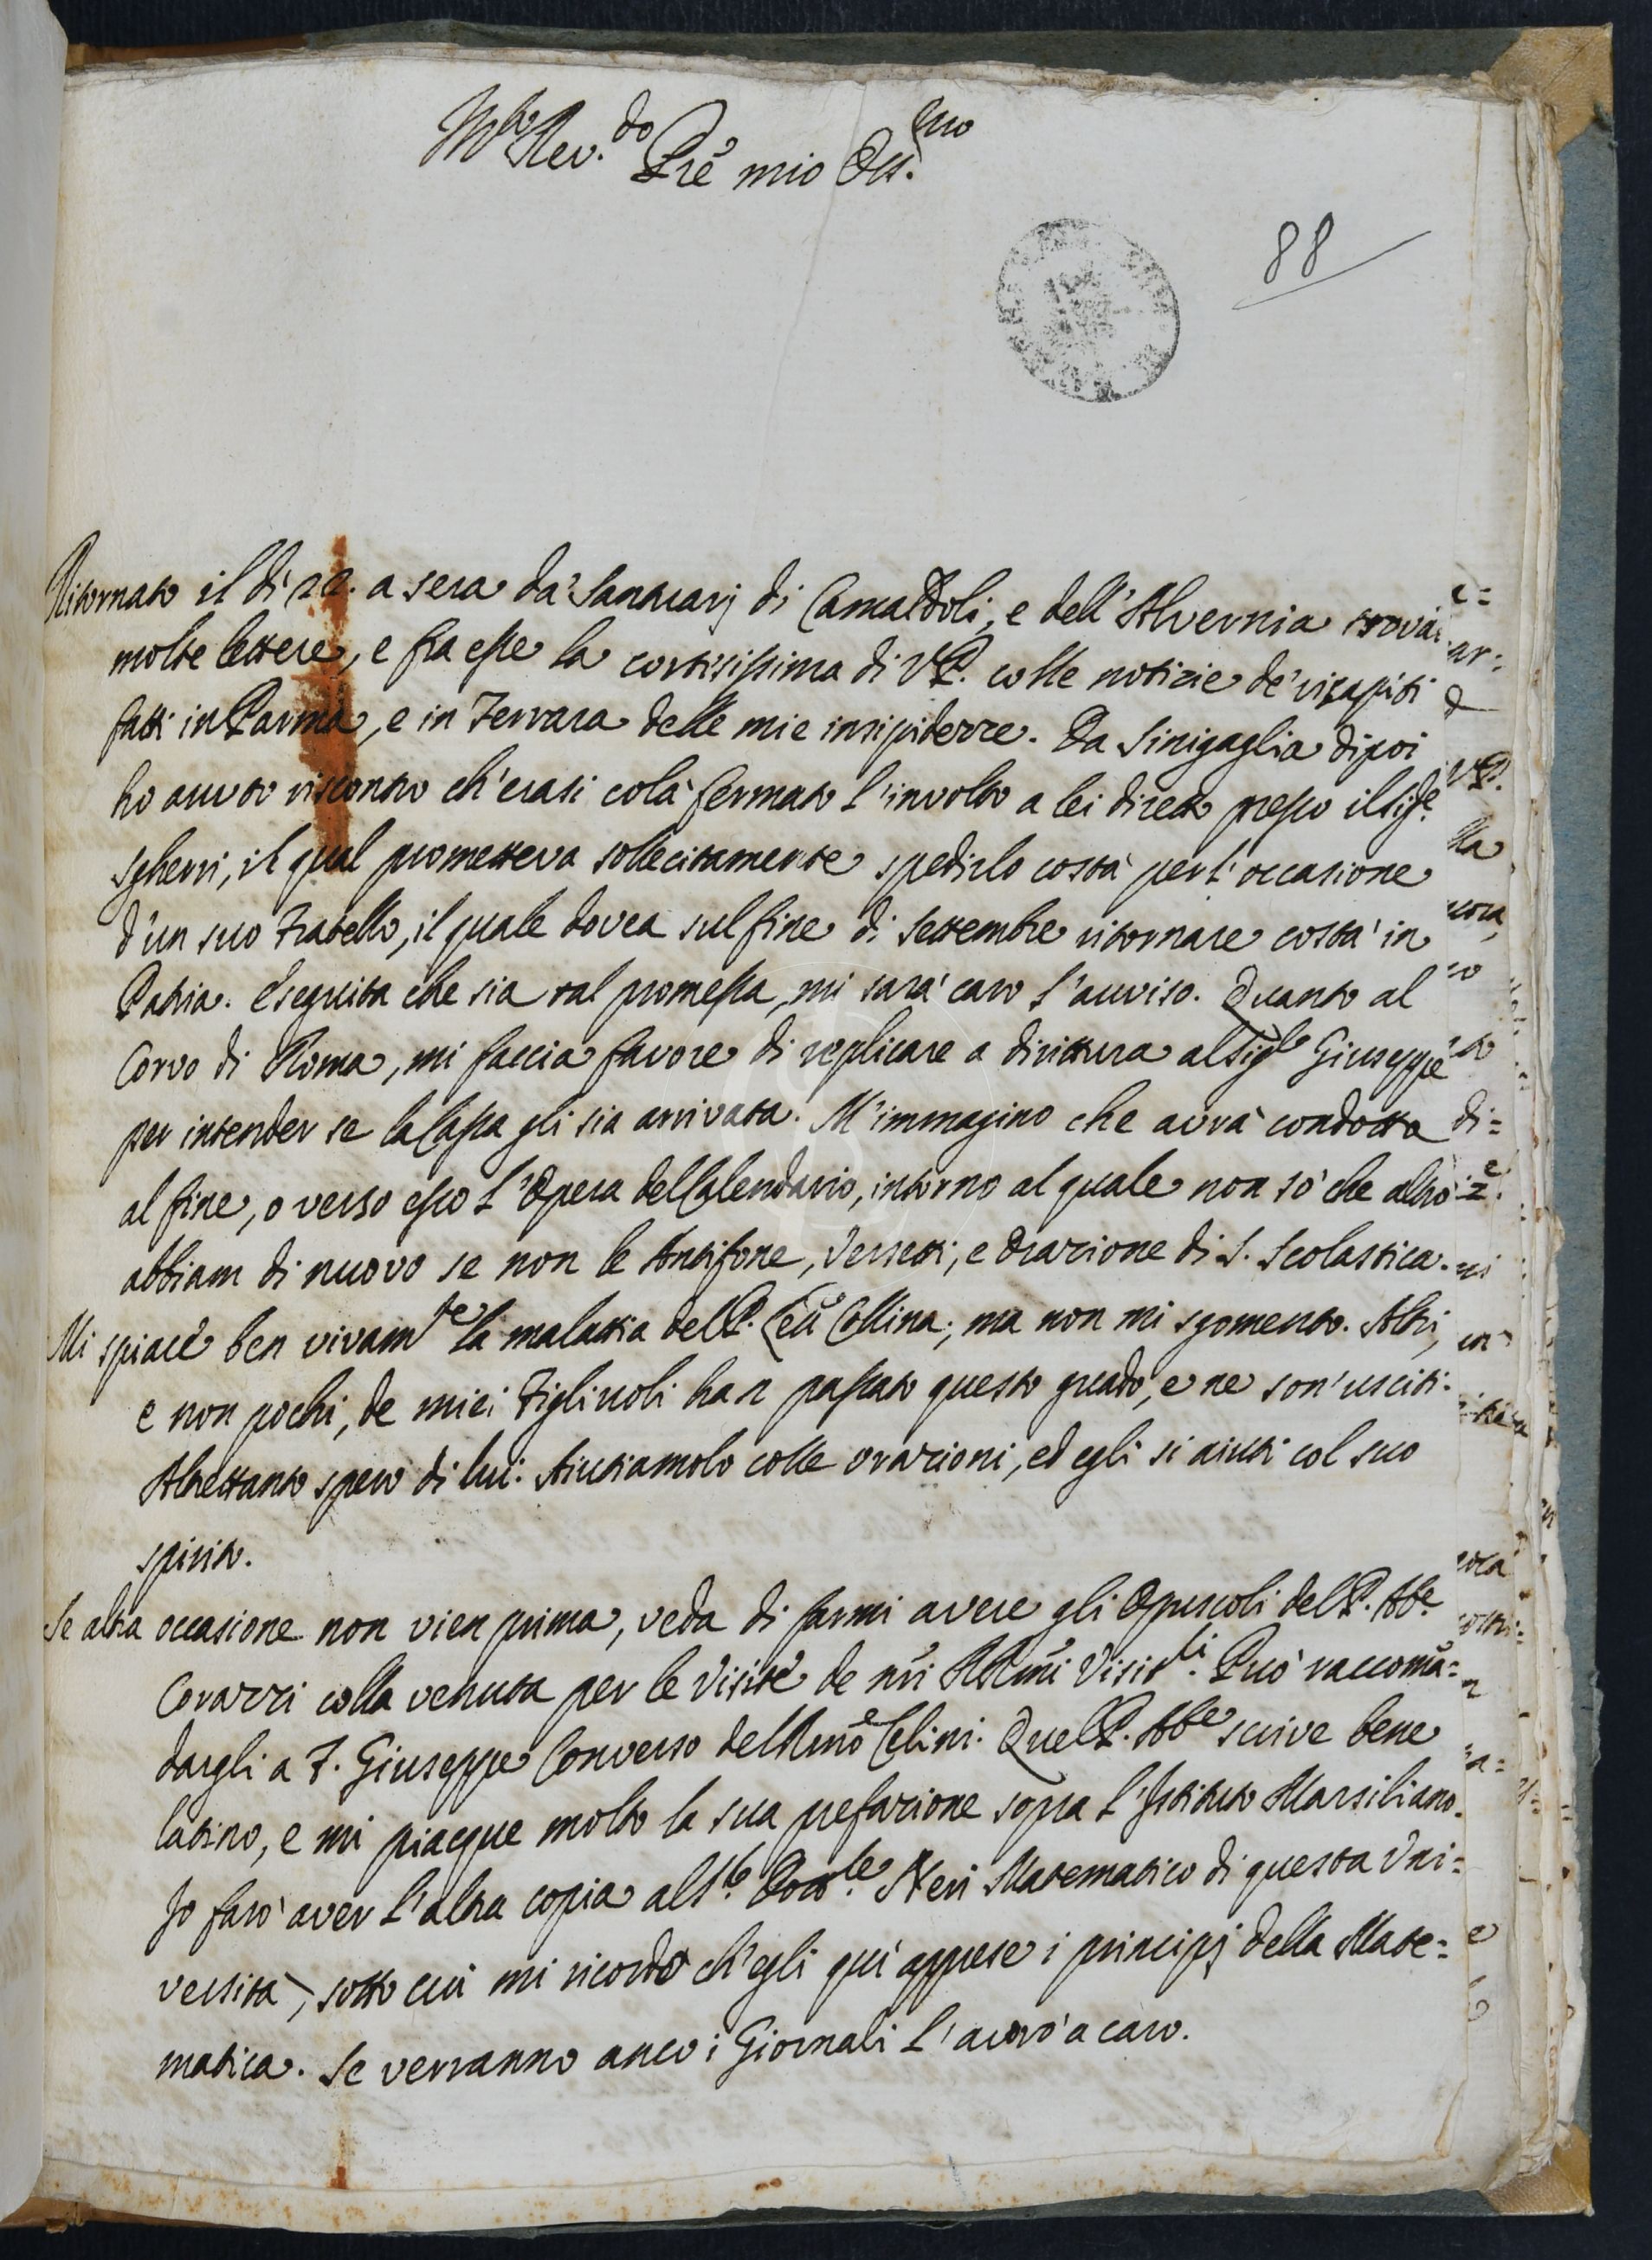 M.to Rev.do Prē mio Oss.mo
88
Ritornato il dì 22. a sera da' Santuarj di Camaldoli, e dell'Alvernia trovai
molte lettere, e fra esse la cortesissima di V.P. colle notizie de' ricapiti
fatti in Parma, e in Ferrara delle mie insipidezze. Da Sinigaglia dipoi
ho avuto riscontro ch'erasi colà fermato l'involto a lei diretto presso il Sig.e
Sgherri, il qual prometteva sollecitamente spedirlo costà per l'occasione
d'un suo Fratello, il quale dovea sul fine di Settembre ritornare costà in
Patria. Eseguita che sia tal promessa, mi sarà caro l'avviso. Quanto al
Corvo di Roma, mi faccia favore di replicare a dirittura al Sig.e Giuseppe
per intender se la Cassa gli sia arrivata. M'immagino che avrà condotta
al fine, o verso esso l'Opera del Calendario, intorno al quale non sò che altro
abbiam di nuovo se non le Antifone, Versetti, e Orazione di S. Scolastica.
Mi spiace ben vivam.te la malattia del P. Collina; ma non mi sgomento. Altri,
e non pochi, de miei Figliuoli han passato questo guado, e ne son'usciti.
Altrettanto spero di lui. Aiutiamolo colle orazioni, ed egli si aiuti col suo
spirito.
Se altra occasione non vien prima, veda di farmi avere gli Opuscoli del P. Ab.e
Corazzi colla venuta per le Visite de nr̄i RR̄mi Visit.li. Può raccomā=
dargli a F. Giuseppe Converso del Rm̄o Celini. Quel P. Ab.e scrive bene
latino, e mi piacque molto la sua prefazione sopra l'Istituto Marsiliano.
Io farò aver l'altra copia al S.e Dott.re Neri Matematico di questa Uni=
versità, sotto cui mi ricordo ch'egli quì apprese i principj della Mate=
matica. Se verranno anco i Giornali l'avrò a caro.